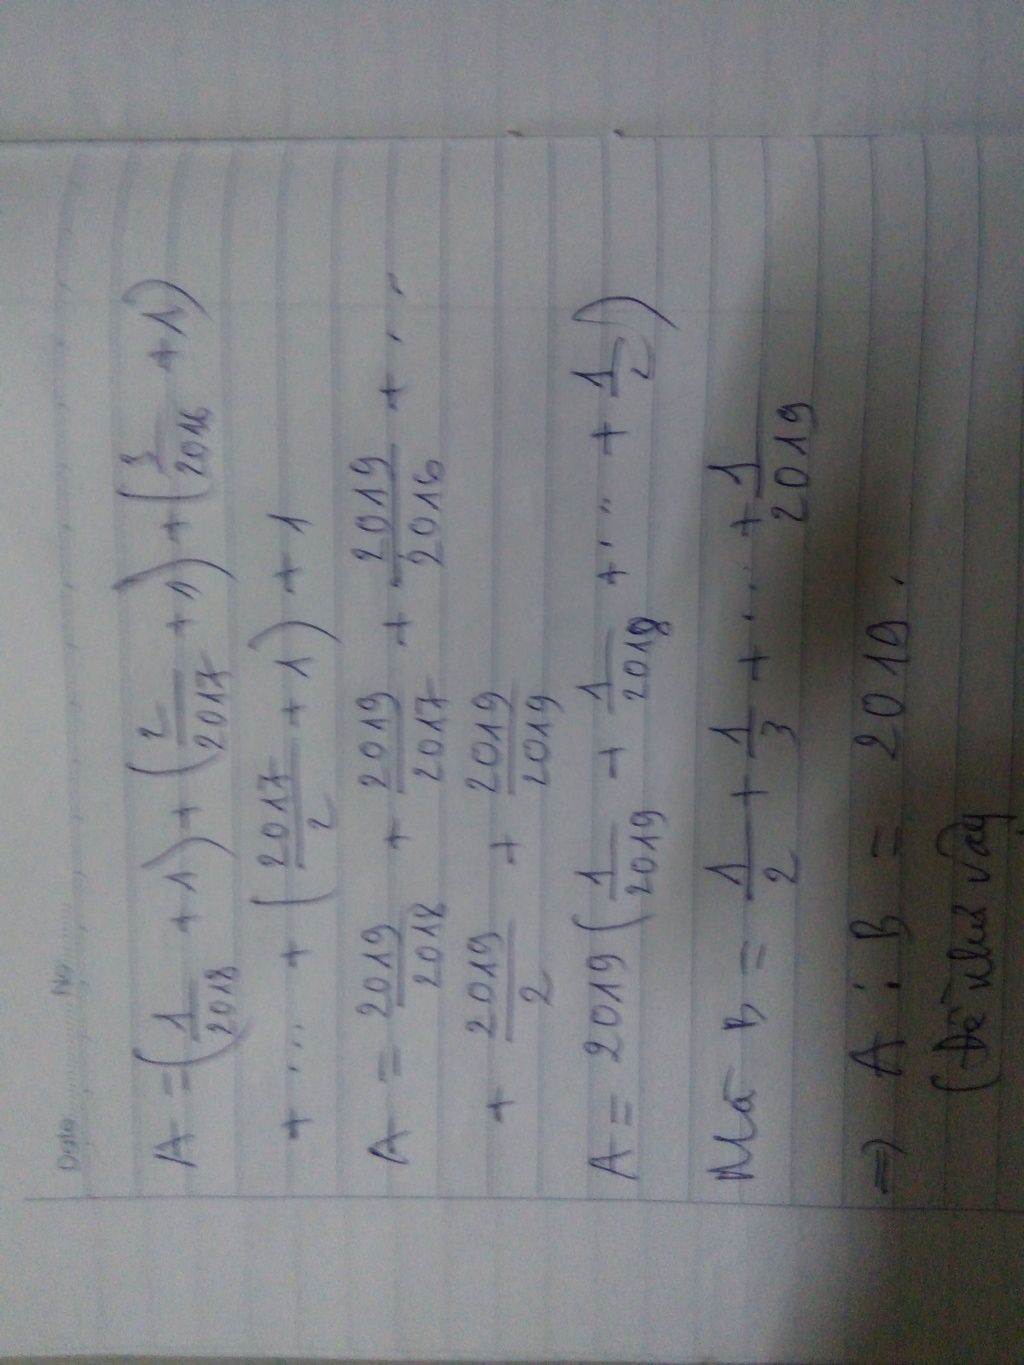 Date No
A = (1/2018 + 1) + (2/2017 + 1) + (3/2016 + 1)
+ ... + (2017/2 + 1) + 1
A = 2019/2018 + 2019/2017 + 2019/2016 + ...
+ 2019/2 + 2019/2019
A = 2019 (1/2019 + 1/2018 + ... + 1/2)
Mà B = 1/2 + 1/3 + ... + 1/2019
=> A : B = 2019.
(Dễ như vậy